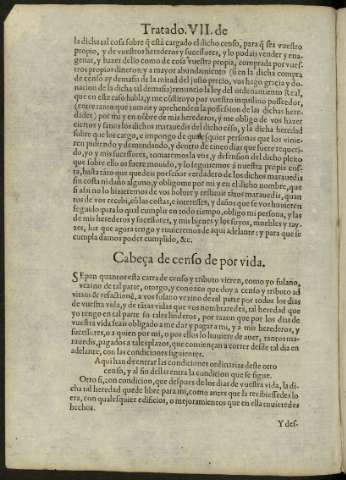 Tratado. VII. de
la dicha tal cosa sobre q̃ està cargado el dicho censo, para q̃ sea vuestro
propio, y de vuestros herederos y sucessores, y lo podais vender y ena-
genar, y hazer dello como de cosa vuestra propia, comprada por vues-
tros propios dineros: y a mayor abundamiento (si en la dicha compra
de censo ay demasia de la mitad del justo precio, vos hago gracia y do-
nacion de la dicha tal demasia) renuncio la ley del ordenamiento Real,
que en este caso habla, y me cõstituyo por vuestro inquilino posseedor,
(entre tanto que tomais y aprehendeis la possession de las dichas here-
dades) por mi y en nõbre de mis herederos, y me obligo de vos hazer
ciertos y sanos los dichos marauedis del dicho cẽso, y la dicha heredad
sobre que los cargo, e impongo de qualesquier personas que los vinie-
ren pidiendo y demandando, y dentro de cinco dias que fuere requeri-
do, yo y mis sucessores, tomaremos la voz, y defension del dicho pleito
que sobre ello os fuere mouido, y lo seguiremos a nuestra propia cos-
ta, hasta tãto que quedeis en possessiõ verdadero de los dichos marauedis
sin costa ni daño alguno, y obligome por mi y en el dicho nombre, que
si assi no lo hizieremos de vos boluer y restituir tãtos marauedis, quan-
tos de vos recebi, cõ las costas, e interesses, y daños que se vos huuieren
seguido para lo qual cumplir en todo tiempo, obligo mi persona, y las
de mis herederos y sucessores, y mis bienes y los suyos, muebles y ray-
zes, los que agora tengo y tuuieremos de aqui adelante: y para que se
cumpla damos poder cumplido, &c.
Cabeça de censo de por vida.
SEpan quantos esta carta de censo y tributo vieren, como yo fulano,
vezino de tal parte, otorgo, y conozco que doy a censo y tributo ad
vitam de refaction, a vos fulano vezino de tal parte por todos los dias
de vuestra vida, y de otras vidas que vos nombraredes, tal heredad que
yo tengo en tal parte so tales linderos, por razon que por los dias de
vuestra vida seais obligado a me dar y pagar a mi, y a mis herederos, y
sucessores, o a quien por mi, o por ellos lo huuiere de auer, tantos ma-
rauedis, pagados a tales plazos, que comiençan a correr desde tal dia en
adelante, con las condiciones siguientes.
Aqui han de entrar las condiciones ordinarias deste otro
censo, y al fin dellas entra la condicion que se sigue.
Otro si, con condicion, que despues de los dias de vuestra vida, la di-
cha tal heredad quede libre para mi, como antes que la recibiessedes lo
era, con qualesquier edificios, o mejoramientos que en ella tuuieredes
hechos.
Y des-